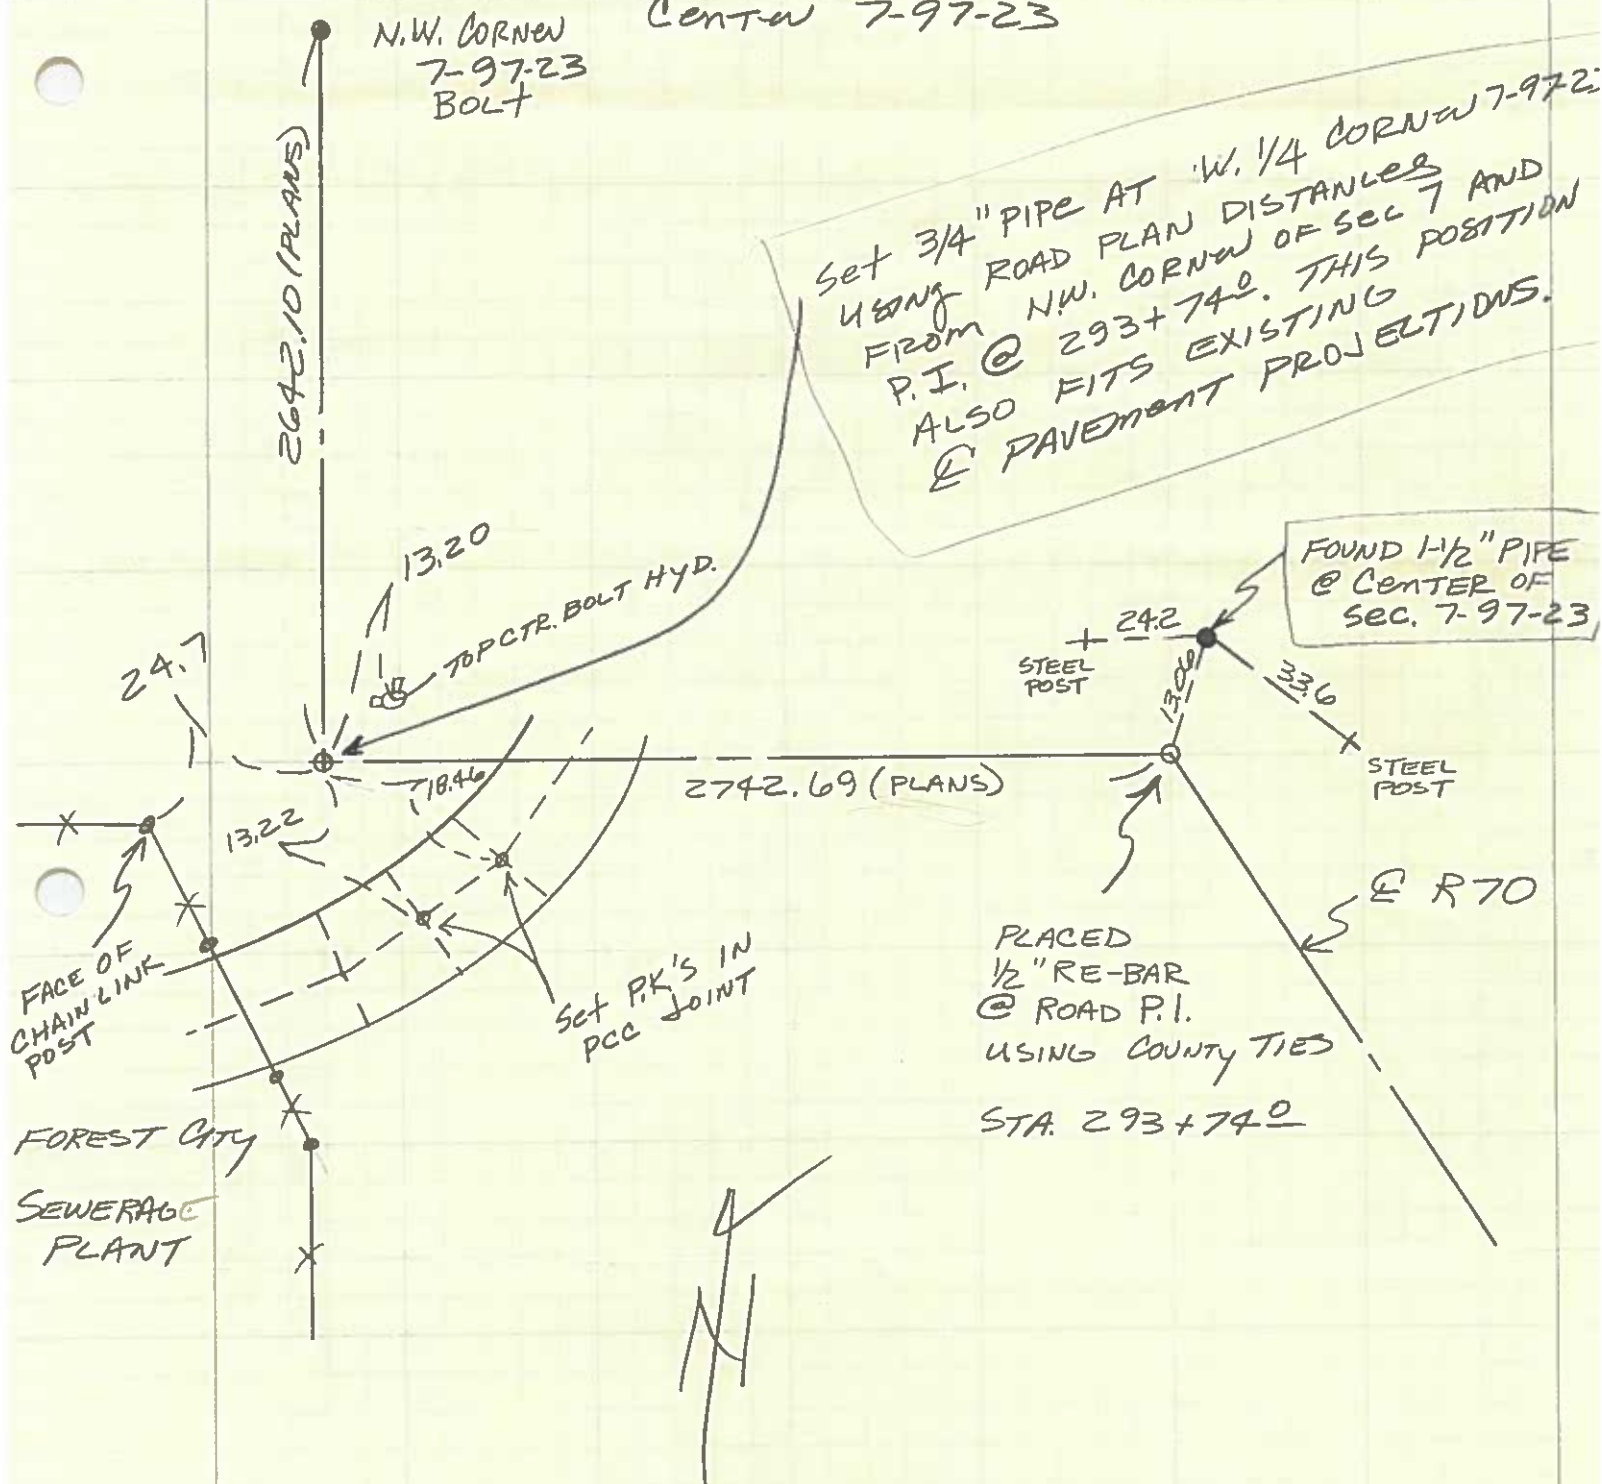 CENTER 7-97-23
N.W. CORNER
7-97-23
BOLT
2642.10 (PLANS)
Set 3/4" PIPE AT W. 1/4 CORNER 7-97-2
USING ROAD PLAN DISTANCES
FROM N.W. CORNER OF SEC 7 AND
P.I. @ 293+74.0. THIS POSITION
ALSO FITS EXISTING
℄ PAVEMENT PROJECTIONS.
13.20
TOP CTR. BOLT HYD.
24.7
FOUND 1-1/2" PIPE
@ CENTER OF
SEC. 7-97-23
24.2
STEEL
POST
13.06
33.6
STEEL
POST
18.46
2742.69 (PLANS)
13.22
℄ R70
FACE OF
CHAIN LINK
POST
Set P.K.'S IN
PCC JOINT
PLACED
1/2" RE-BAR
@ ROAD P.I.
USING COUNTY TIES
STA. 293+74.0
FOREST CITY
SEWERAGE
PLANT
N